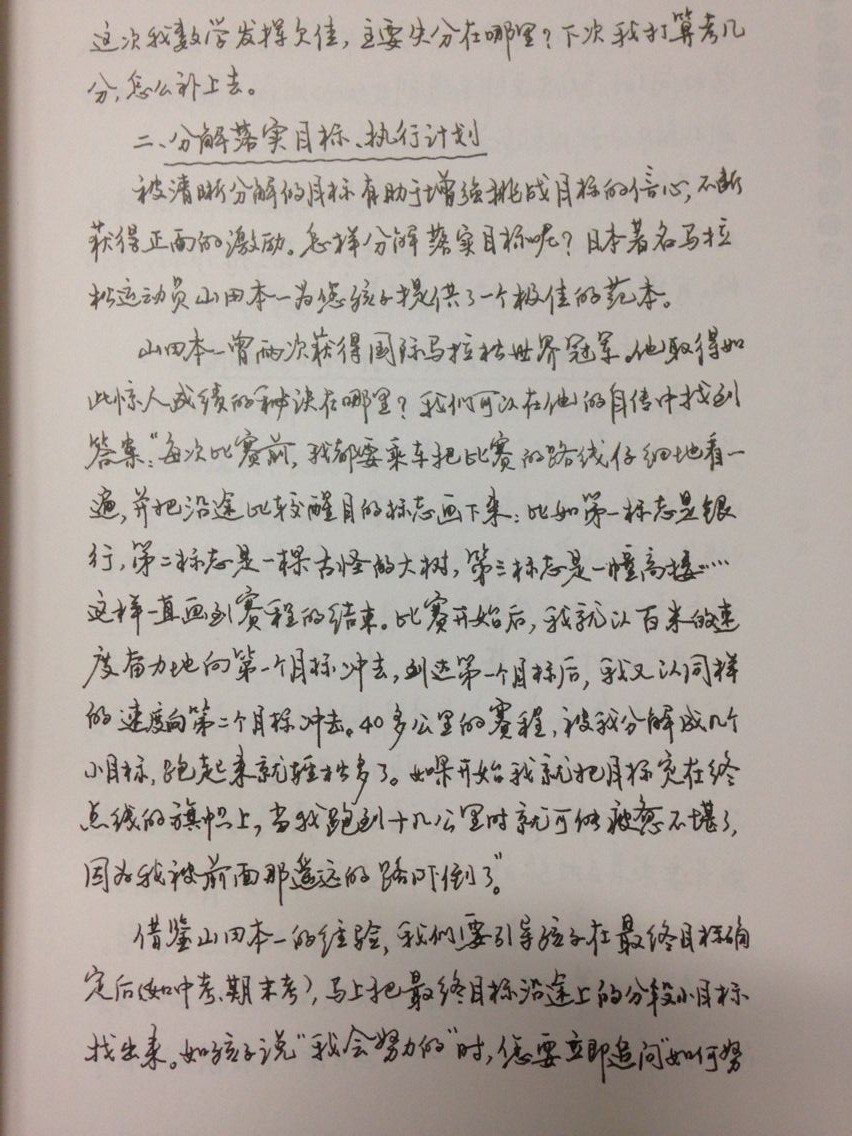 这次我数学发挥欠佳，主要失分在哪里？下次我打算考几
分，怎么补上去。
二、分解落实目标、执行计划
被清晰分解的目标有助于增强挑战目标的信心，不断
获得正面的激励。怎样分解落实目标呢？日本著名马拉
松运动员山田本一为您孩子提供了一个极佳的范本。
山田本一曾两次获得国际马拉松世界冠军。他取得如
此惊人成绩的秘诀在哪里？我们可以在他的自传中找到
答案：“每次比赛前，我都要乘车把比赛的路线仔细地看一
遍，并把沿途比较醒目的标志画下来：比如第一标志是银
行，第二标志是一棵古怪的大树，第三标志是一幢高楼……
这样一直画到赛程的结束。比赛开始后，我就以百米的速
度奋力地向第一个目标冲去，到达第一个目标后，我又以同样
的速度向第二个目标冲去。40多公里的赛程，被我分解成几个
小目标，跑起来就轻松多了。如果开始我就把目标定在终
点线的旗帜上，当我跑到十几公里时就可能疲惫不堪了，
因为我被前面那遥远的路吓倒了”。
借鉴山田本一的经验，我们要引导孩子在最终目标确
定后（如中考、期末考），马上把最终目标沿途上的分段小目标
找出来。如孩子说“我会努力的”时，您要立即追问“如何努